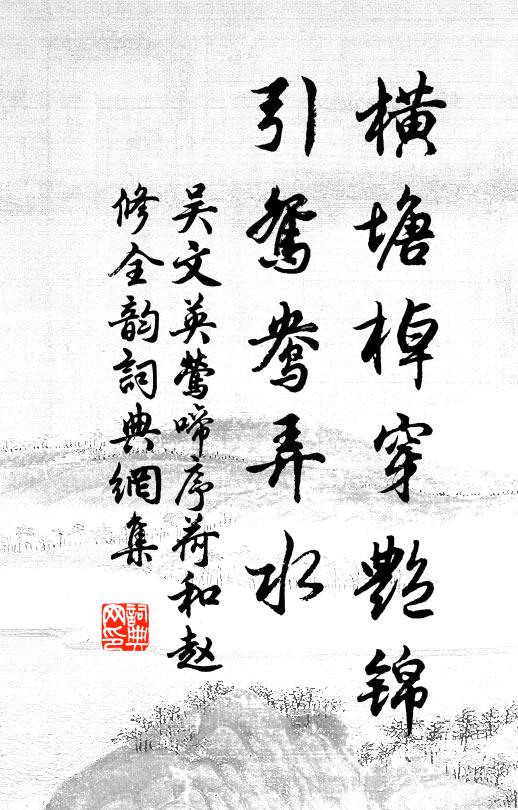 橫塘棹穿艷錦
引鴛鴦弄水
吳文英鶯啼序荷和趙
修全韵詞典網集
詞典
网印